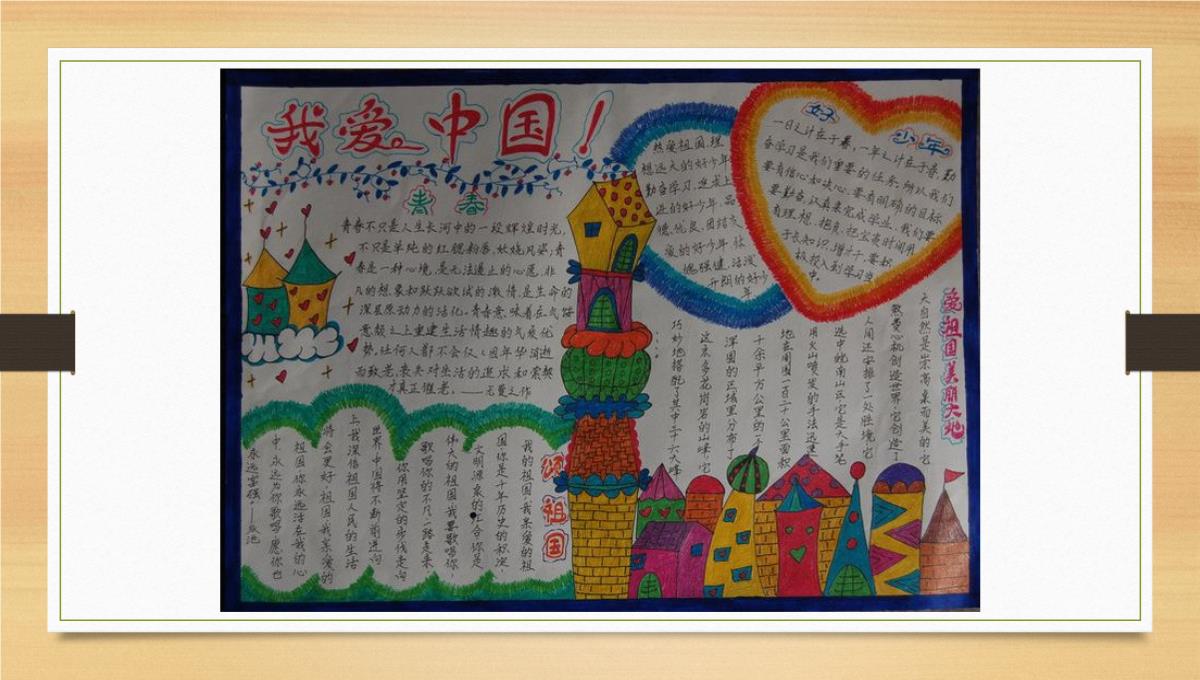 我爱中国！
青春
青春不只是人生长河中的一段辉煌时光,
不只是单纯的红腮粉唇,妖娆风姿;青
春是一种心境,是无法遏止的心愿,非
凡的想象和跃跃欲试的激情,是生命的
深层原动力的活化。青春意味着在气
意颓之上重建生活情趣的气质优
势。任何人都不会仅仅因年华消逝
而致老,丧失对生活的追求和索求
才真正催老。——无
热爱祖国,理
想远大的好少年
勤奋学习、追求上
进的好少年,品
德优良、团结友
爱的好少年,体
魄强健、活泼
开朗的好少
年
好少年
一日之计在于晨,一年之计在于春,勤
奋学习是我们重要的任务。所以我们
要有信心和决心,要有明确的目标
要勤奋、认真来完成学业。我们要
有理想、抱负,把宝贵时间用
于长知识、增才干,要积
极投入到学习当
中。
爱祖国美丽大地
大自然是崇高卓而美的。它
煞费心机创造世界,它创造了
人间还安排了一处胜境。它
选中皖南山区,它是大手笔
用火山喷发的手法迅速
地在周围一百二十公里面积
千余平方公里的一
浑圆的区域里分布了
这么多花岗岩的山峰。它
巧妙地搭配了其中三十六大峰
颂祖国
我的祖国,我亲爱的祖
国,你是千年历史的积淀,
文明源泉的汇合,你是
伟大的祖国,我要歌唱你,
歌唱你的不凡,一路走来
你用坚定的步伐走向
世界,中国将不断前进向
上,我深信祖国人民的生活
将会更好,祖国,我亲爱的
祖国,你永远活在我的心
中,永远为你歌唱,愿你也
永远富强。